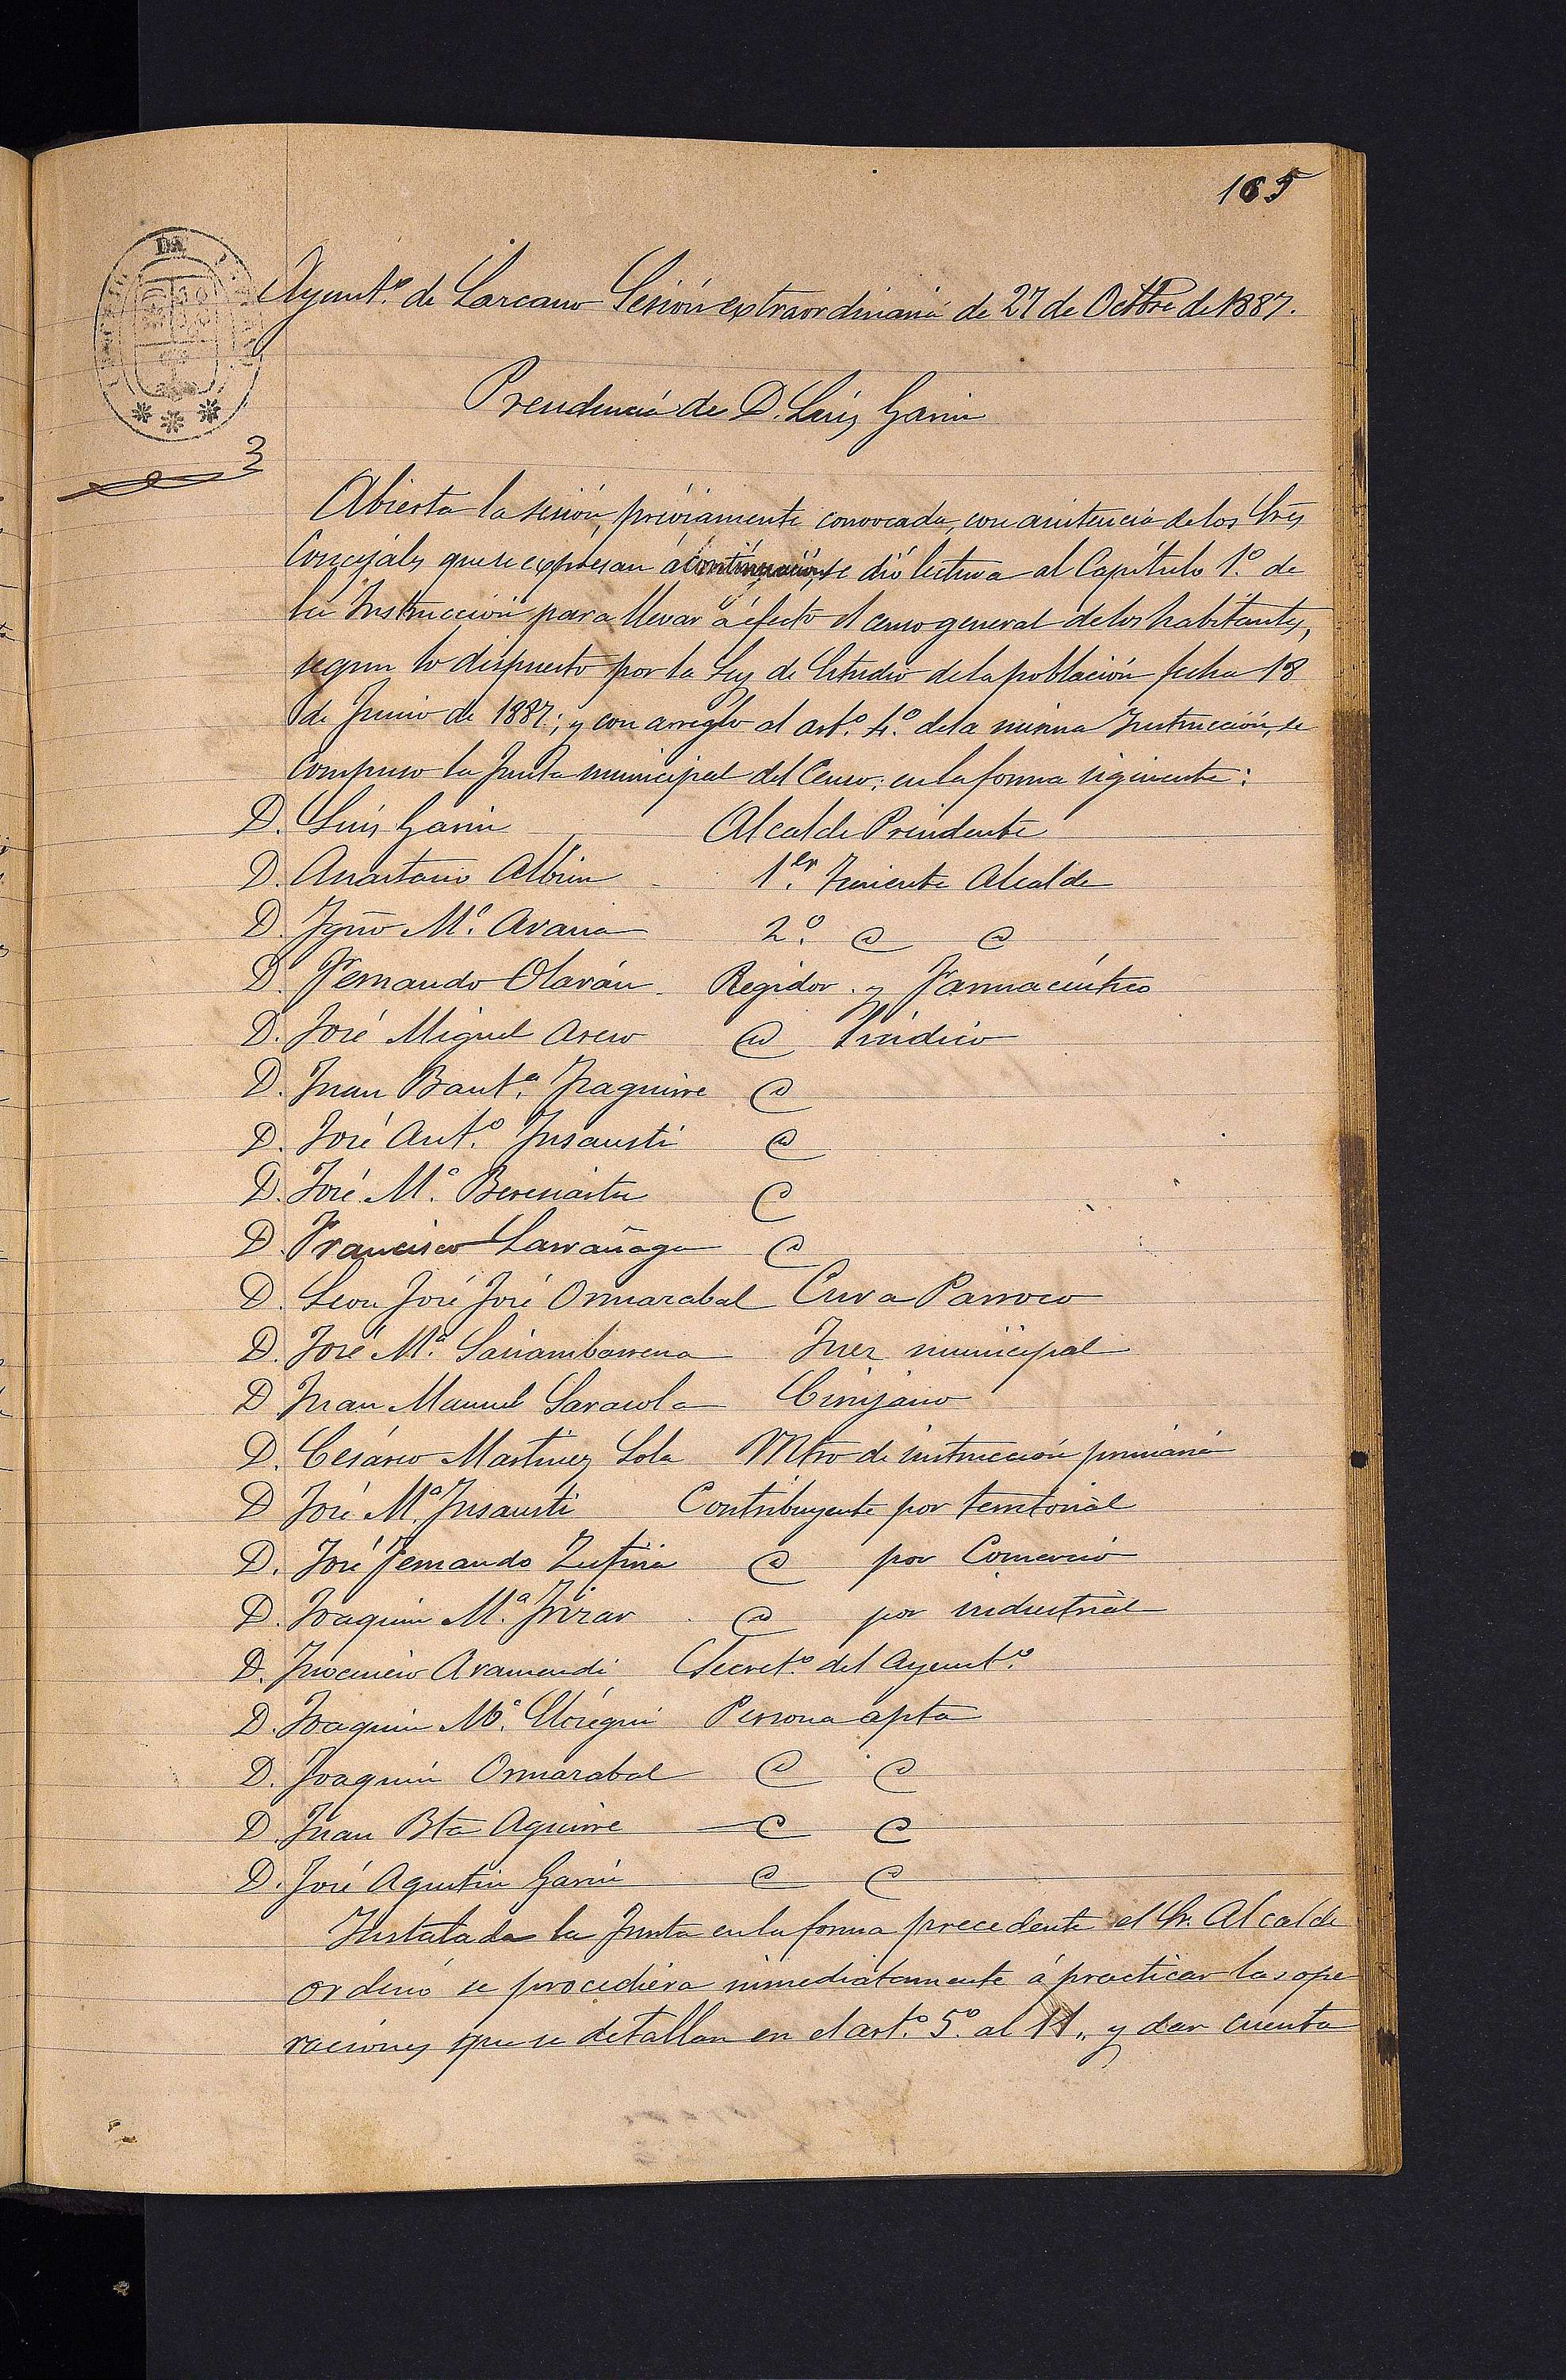 165
DE
Ayuntº. de Lazcano Sesión extraordinaria de 27 de Octbre de 1887.
Presidencia de D. Luis Garin
3
Abierta la sesión, préviamente convocada, con asistencia de los Sres
Concejales que se expresan á continuación, se dió lectura al Capítulo 1º. de
la Instrucción para llevar á efecto el censo general de los habitantes,
segun lo dispuesto por la Ley de Estudio de la población fecha 18
de Junio de 1887; y con arreglo al artº. 4º. de la misma Instrucción, se
compuso la Junta municipal del Censo; en la forma siguiente:
D. Luis Garin Alcalde Presidente
D. Anastasio Albisu 1er. Teniente Alcalde
D. Ygnº Mª. Arana 2º. @ @
D. Fernando Olarán Regidor y Farmacéutico
D. José Miguel Aseso @ Síndico
D. Juan Bautª. Yraguirre @
D. José Antº. Insausti @
D. José Mª. Beresiartu @
D. Francisco Larrañaga @
D. Leon José José Ormazabal Cura Parroco
D. José Mª. Sariambarrena Juez municipal
D. Juan Manuel Sarasola Cirujano
D. Cesáreo Martinez Sola Mtro de instrucción primaria
D. José Mª. Insausti Contribuyente por territorial
D. José Fernando Zufiria @ por Comercio
D. Joaquin Mª. Irizar @ por industrial
D. Inocencio Aramendi Secretº. del Ayuntº.
D. Joaquin Mª. Persona apta
D. Joaquin Ormazabal @ @
D. Juan Bta Aguirre @ @
D. José Agustin Garin @ @
Instalada la Junta en la forma precedente el Sr. Alcalde
ordenó se procediera inmediatamente á practicar las ope
raciones que se detallan en el artº. 5º. al 11., y dar cuenta